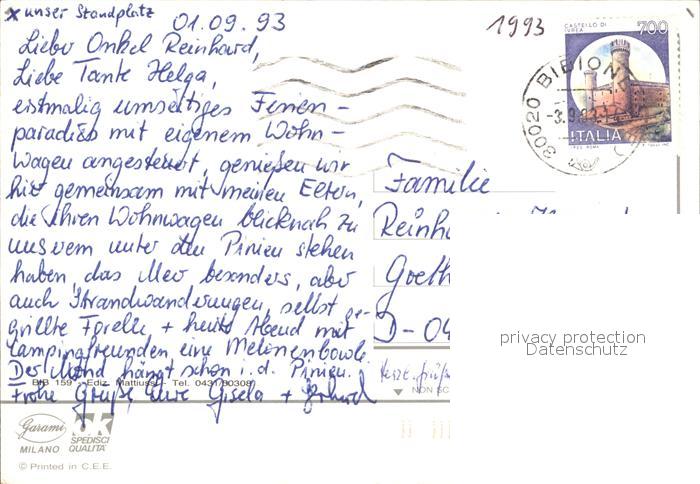 x unser Standplatz
01.09.93
1993
Lieber Onkel Reinhard,
Liebe Tante Helga,
erstmalig umseitiges Ferien-
paradies mit eigenem Wohn-
wagen angesteuert, genießen wir
hier gemeinsam mit meinen Eltern,
die ihren Wohnwagen blicknah zu
unserem unter den Pinien stehen
haben, das Meer besonders, aber
auch Strandwanderungen, selbst ge-
grillte Forelle, + heute Abend mit
Campingfreunden eine Melonenbowle.
Der Mond hängt schon i. d. Pinien.
Frohe Grüße, Eure Gisela + Gerhard
CASTELLO DI
IVREA
700
ITALIA
30020 BIBIONE
-3.9.93
Familie
Reinh
Goeth
D-04
privacy protection
Datenschutz
BIB 159 - Ediz. Mattiussi - Tel. 0431/80308
NON SC
Garami
MILANO
OK
SPEDISCI
QUALITÀ
© Printed in C.E.E.